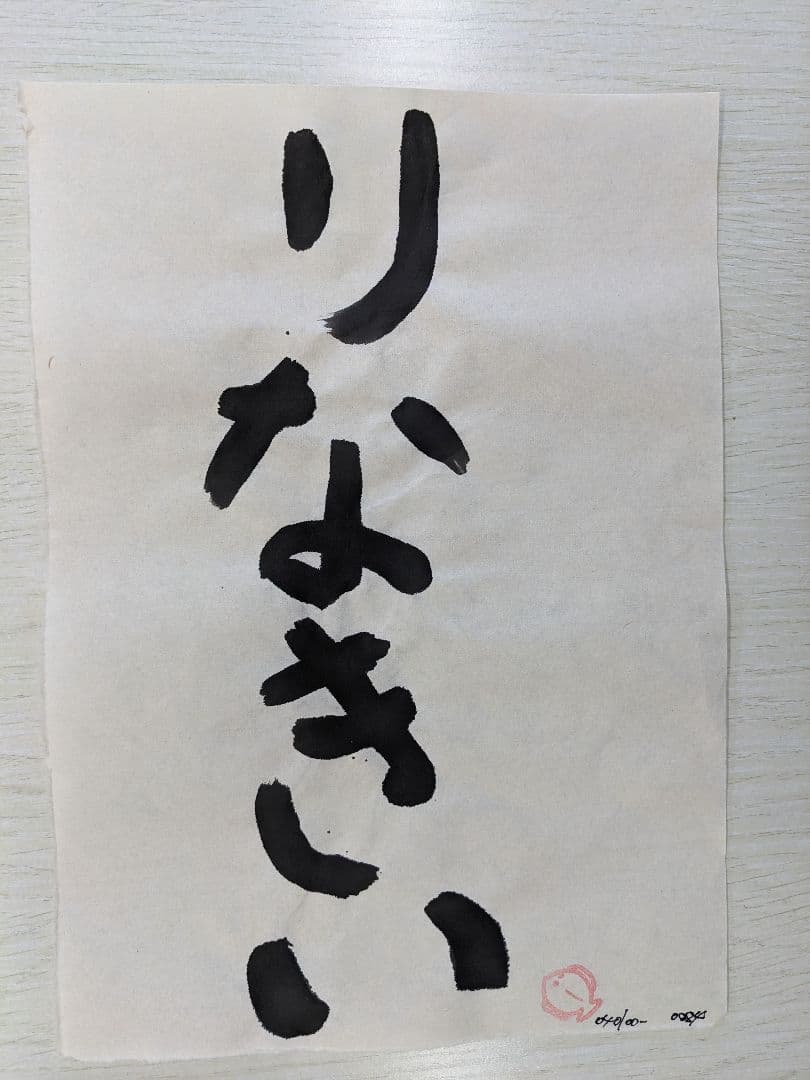 りなきい